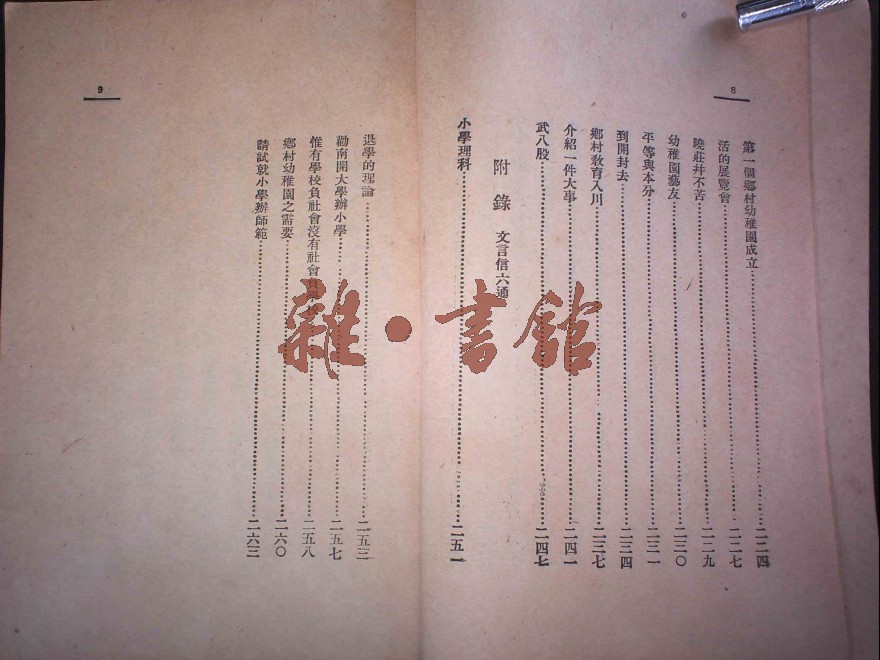 8
第一個鄉村幼稚園成立……二二四
活的展覽會……二二七
曉莊井不苦……二二九
幼稚園藝友……二三〇
平等與本分……二三一
到開封去……二三四
鄉村教育入川……二三七
介紹一件大事……二四一
武八股……二四七
附錄 文言信六通
小學理科……二五一
9
退學的理論……二五三
勸南開大學辦小學……二五七
惟有學校負社會沒有社會負學校……二五八
鄉村幼稚園之需要……二六〇
請試就小學辦師範……二六三
雜·書館